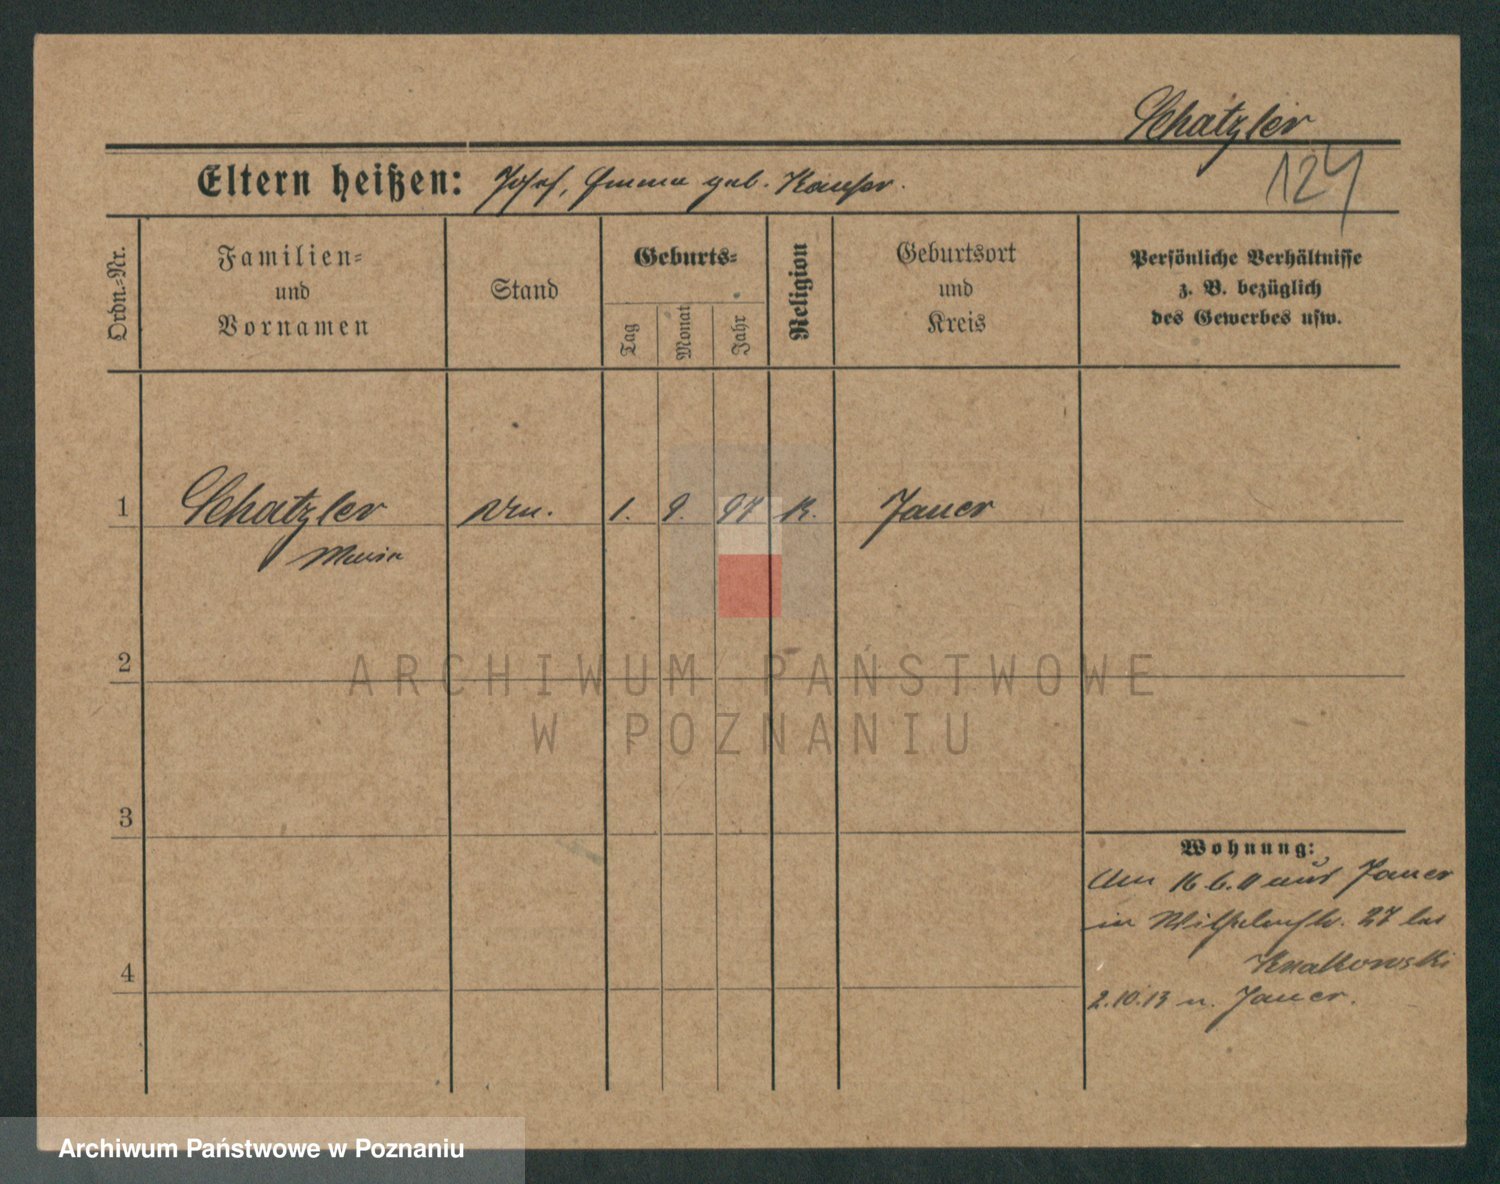 Schatzler
124
Eltern heißen: Josef, Emma geb.
Ordn.-Nr.
Familien-
und
Vornamen
Stand
Geburts-
Tag
Monat
Jahr
Religion
Geburtsort
und
Kreis
Persönliche Verhältnisse
z. B. bezüglich
des Gewerbes usw.
1 Schatzler 1. 9. 97 K. Jauer
Maria
2
3
4
Wohnung:
Am 16 6. 11 aus Jauer
in Wilhelmstr. 27 bei
2.10.13 n. Jauer.
ARCHIWUM PAŃSTWOWE
W POZNANIU
Archiwum Państwowe w Poznaniu